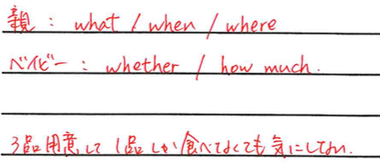 親 : what / when / where
ベイビー : whether / how much.
3品用意して 1品しか食べてなくても気にしてない.